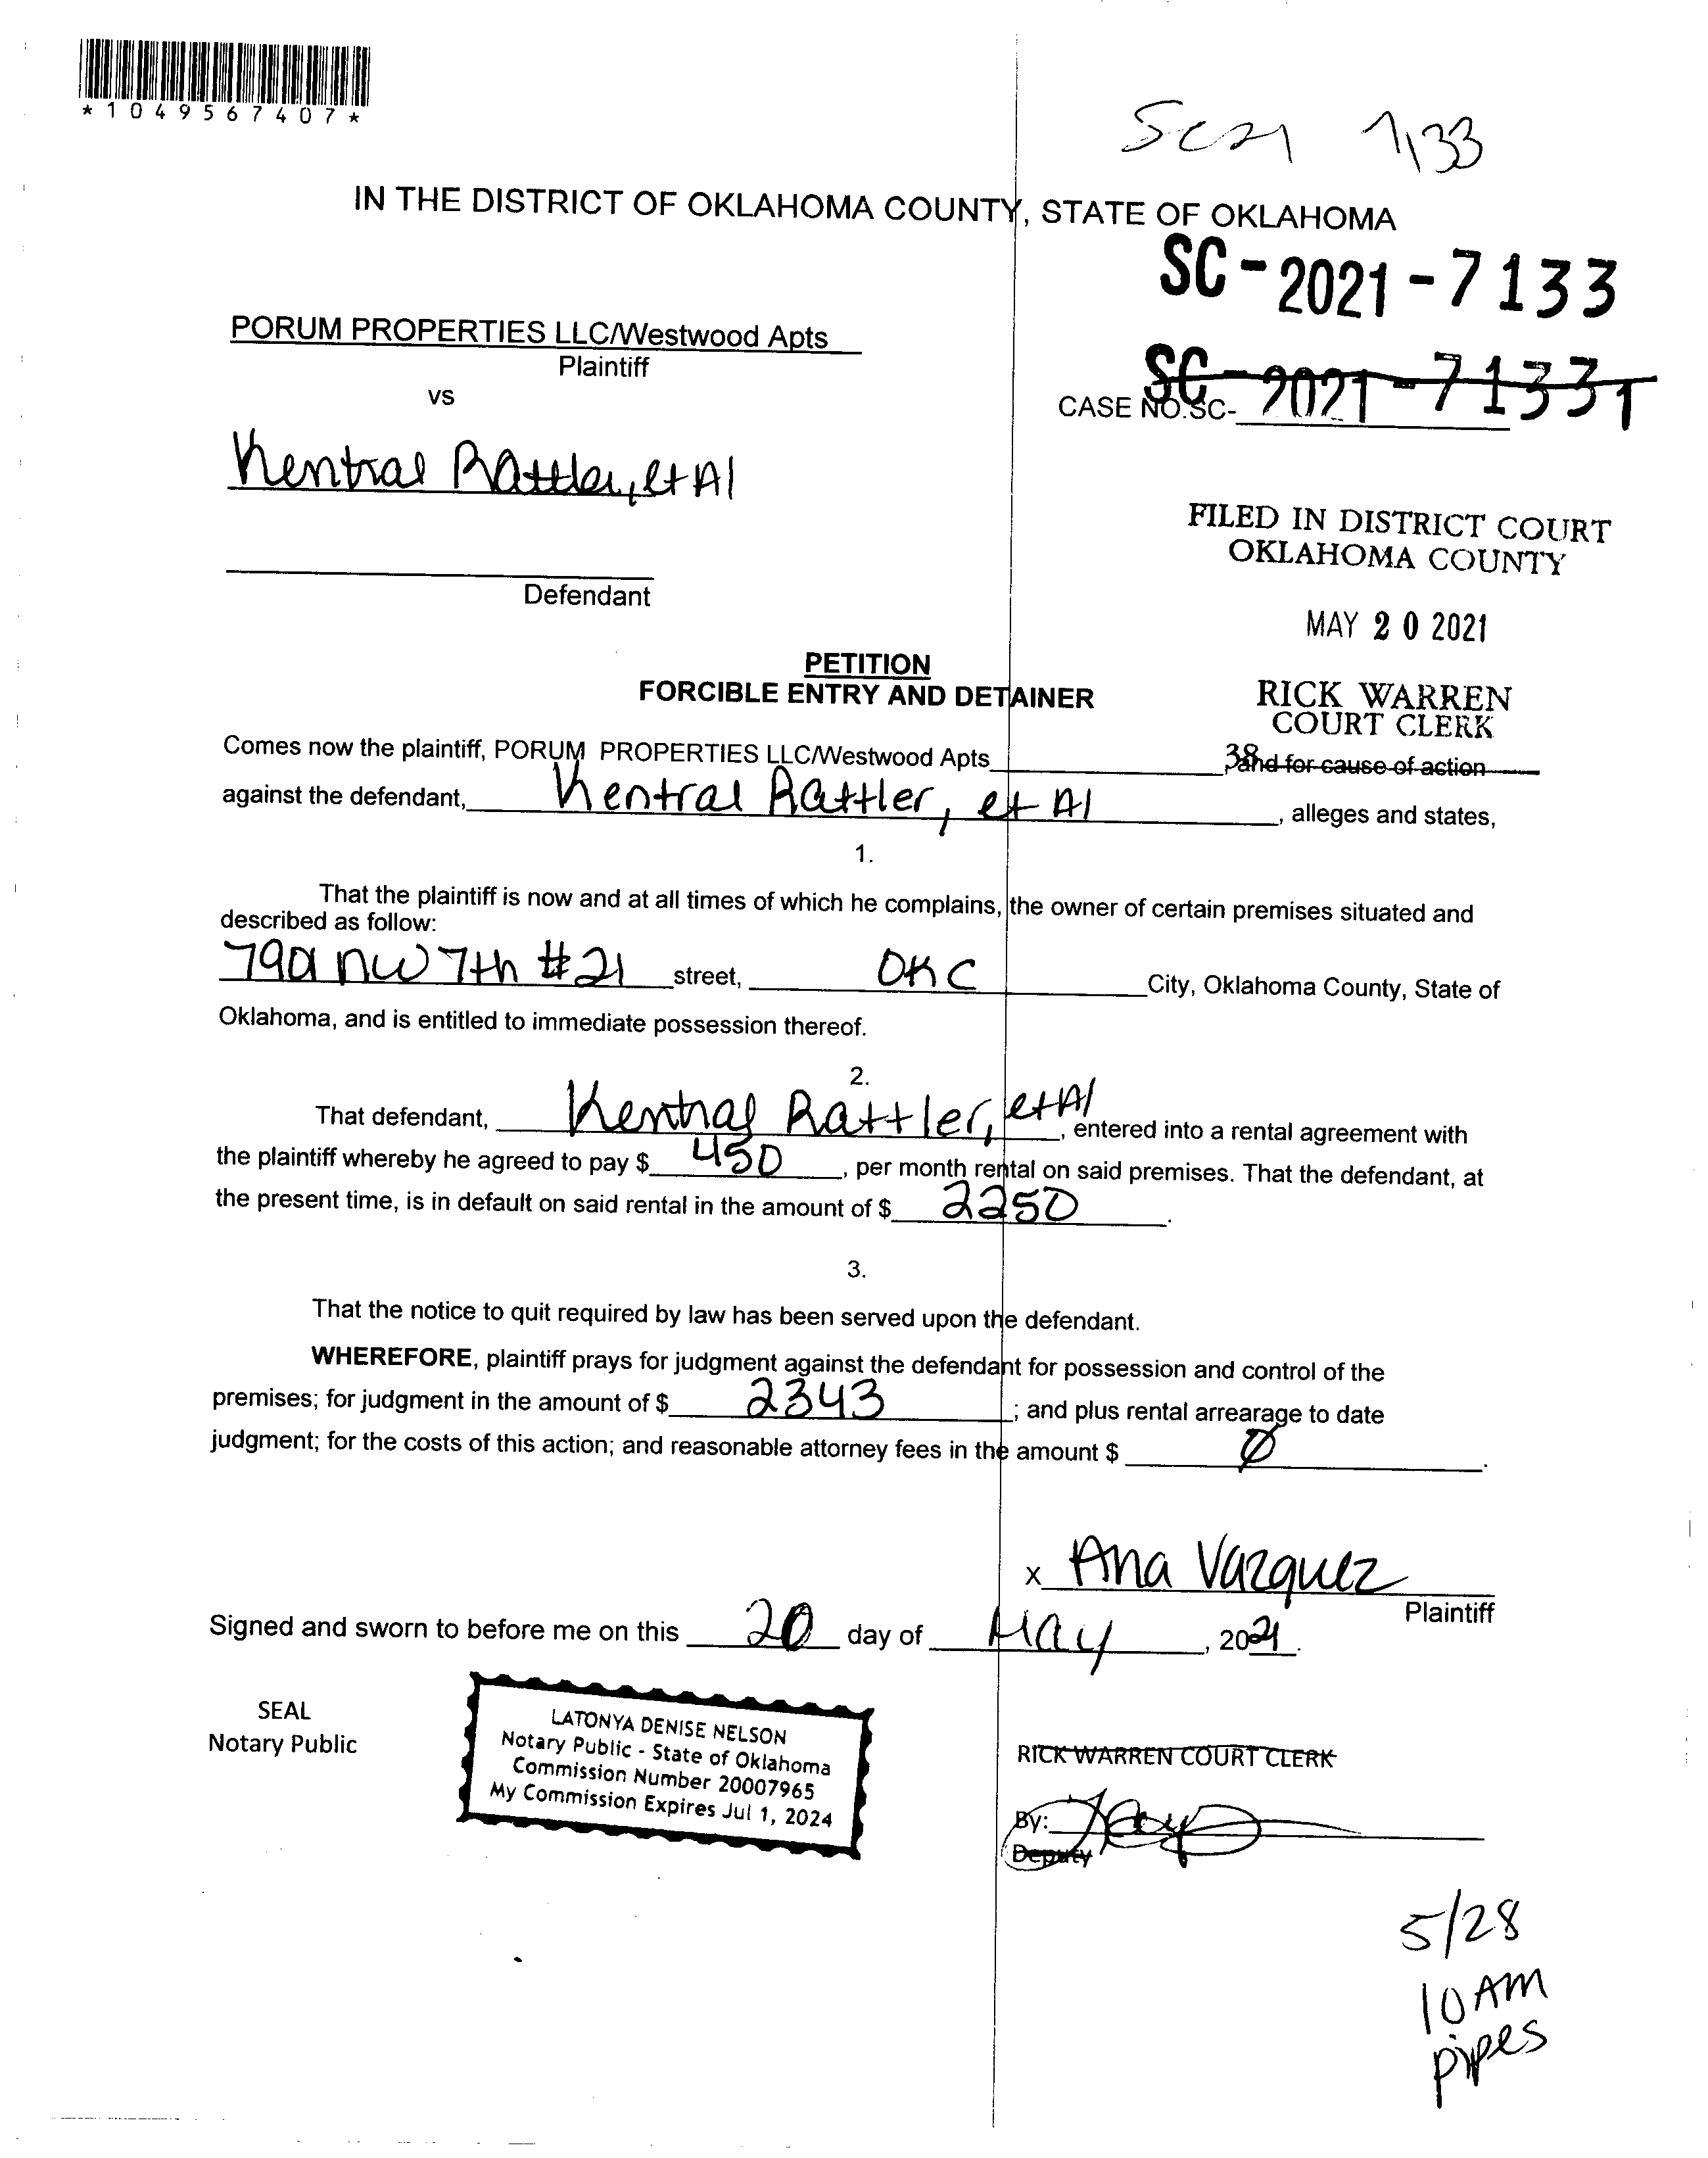 *1049567407*
SC21 7133
IN THE DISTRICT OF OKLAHOMA COUNTY, STATE OF OKLAHOMA
SC-2021-7133
PORUM PROPERTIES LLC/Westwood Apts
Plaintiff
vs
CASE NO.SC- SC-2021-7133
Kentral Rattler, et Al
FILED IN DISTRICT COURT
OKLAHOMA COUNTY
Defendant
MAY 20 2021
PETITION
FORCIBLE ENTRY AND DETAINER
RICK WARREN
COURT CLERK
38
Comes now the plaintiff, PORUM PROPERTIES LLC/Westwood Apts , and for cause of action
against the defendant, Kentral Rattler, et Al , alleges and states,
1.
That the plaintiff is now and at all times of which he complains, the owner of certain premises situated and
described as follow:
NW 7th #21 street, OKC City, Oklahoma County, State of
Oklahoma, and is entitled to immediate possession thereof.
2.
That defendant, Kentral Rattler, et Al , entered into a rental agreement with
the plaintiff whereby he agreed to pay $ 450 , per month rental on said premises. That the defendant, at
the present time, is in default on said rental in the amount of $ 2250 .
3.
That the notice to quit required by law has been served upon the defendant.
WHEREFORE, plaintiff prays for judgment against the defendant for possession and control of the
premises; for judgment in the amount of $ 2343 ; and plus rental arrearage to date
judgment; for the costs of this action; and reasonable attorney fees in the amount $ Ø .
x Ana Vazquez
Plaintiff
Signed and sworn to before me on this 20 day of May , 2021.
SEAL
Notary Public
LATONYA DENISE NELSON
Notary Public - State of Oklahoma
Commission Number 20007965
My Commission Expires Jul 1, 2024
RICK WARREN COURT CLERK
By:
Deputy
5/28
10 AM
pipes